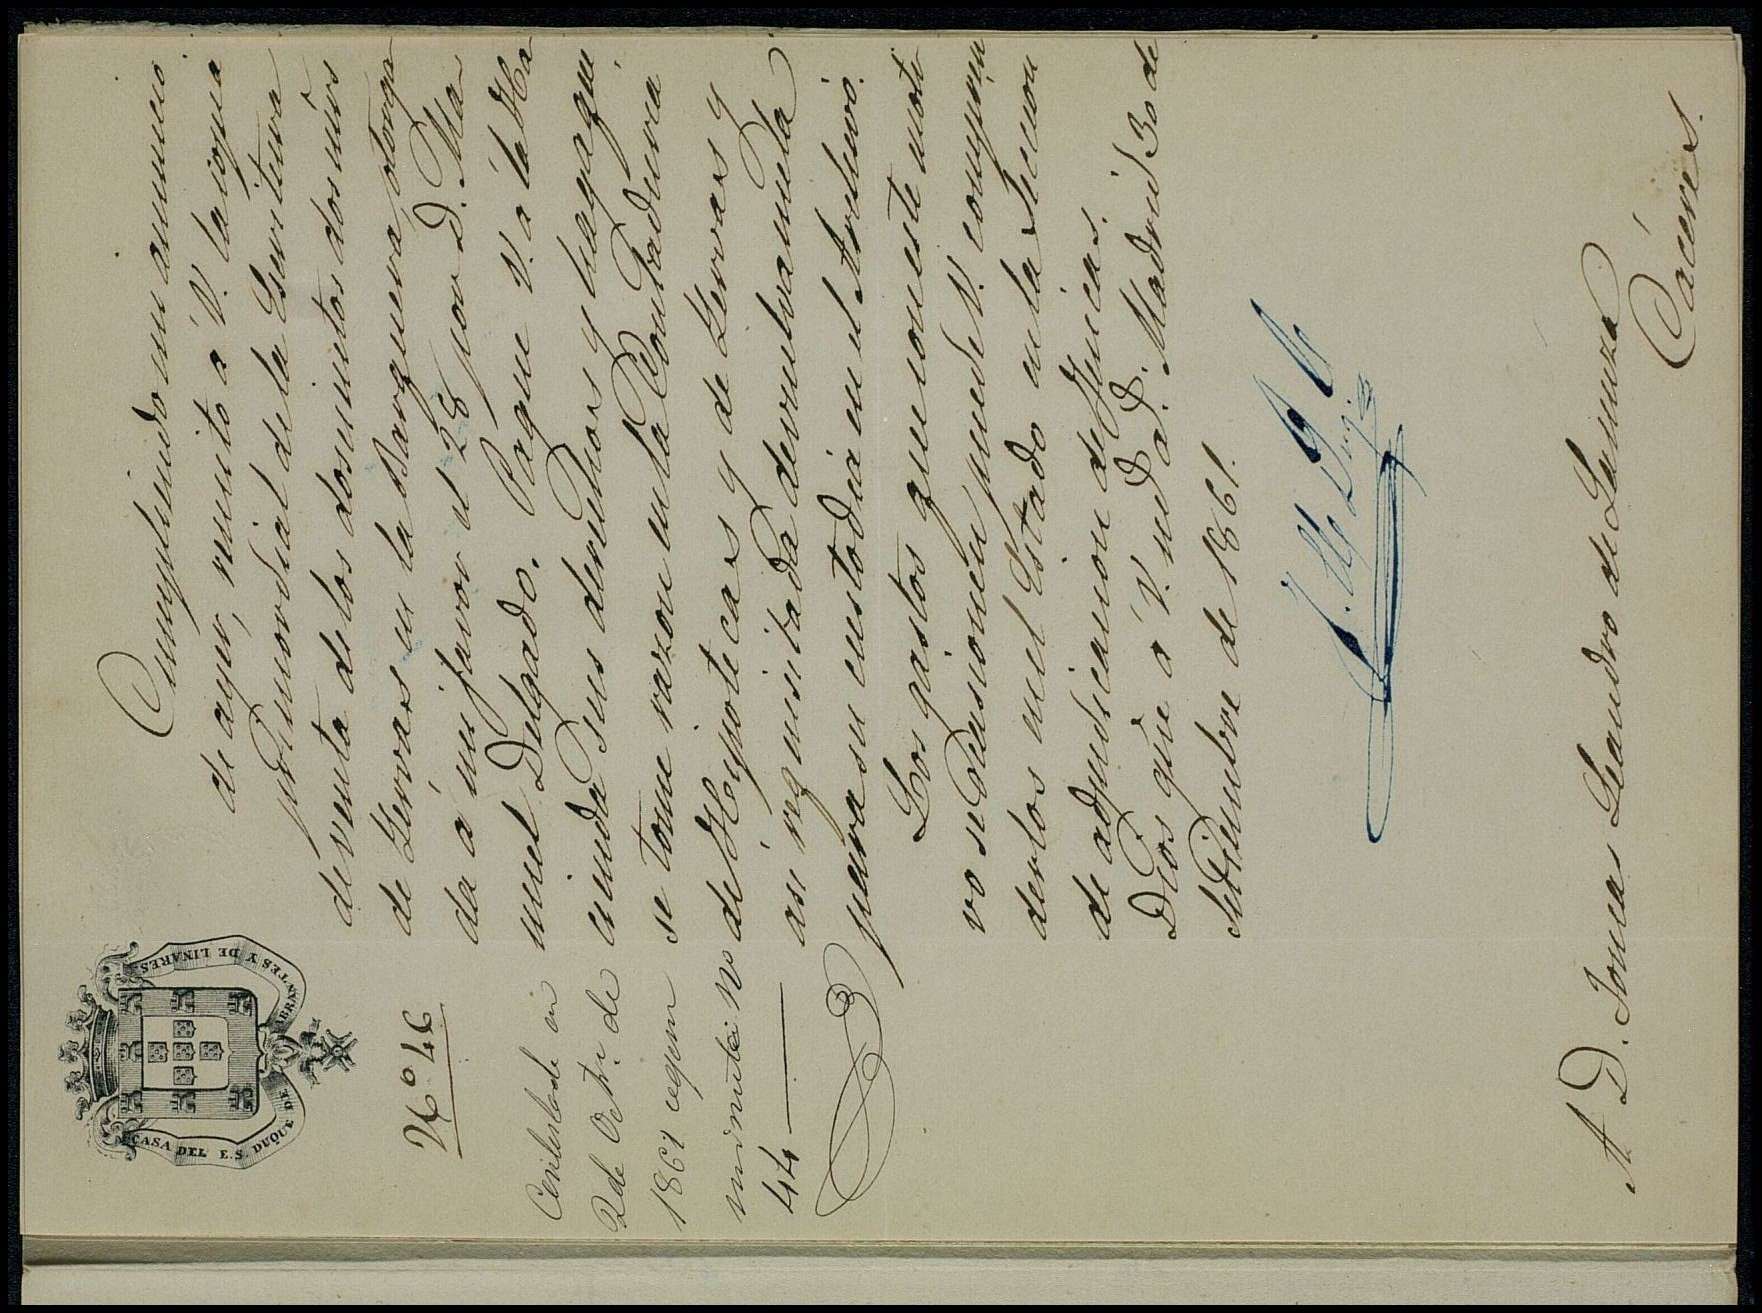 CASA DEL E.S. DUQUE DE ABRANTES Y DE LINARES
Nº 46
Contestada en
2 de Octre. de
1861 segun
minuta nº
44
Cumpliendo mi anuncio
de ayer, remito á V. la copia
primordial de la Escritura
de venta de los doscientos dos mrs
de Yervas en la Barquera, otorga
da á mi favor el 28 por D. Ma
nuel Delgado. Pague V. á la Ha
cienda sus derechos y haga qué
se tome razon en la Contaduría
de Hipotecas y de Yervas y
asi requisitada devuelvamela
para su custodia en el Archivo.
Los gastos que con este moti
vo se ocasionen puede V. compren
derlos en el Estado en la Seccion
de adjudicacion de fincas.
Dios gue á V. m. a. Madrid 30 de
Setiembre de 1861.
A D. Tomas Leandro de Lanuza
Cáceres.